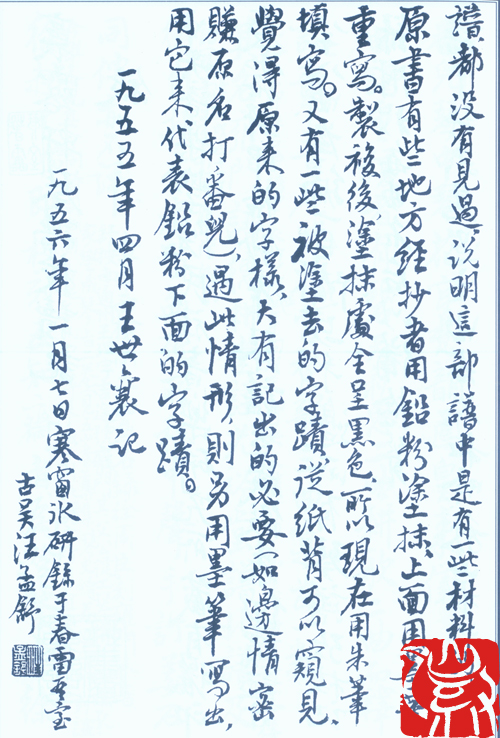 譜都没有見過,说明這部譜中是有一些材料
原書有些地方經抄者用鉛粉塗抹,上面用
重寫。製複後,塗抹處全呈黑色,所以現在用朱筆
填寫。又有一些被塗去的字蹟,從紙背可以窺見,
覺得原来的字樣,大有記出的必要(如邊情密
賺原名打番兒,遇此情形,則另用墨筆寫出,
用它来代表鉛粉下面的字蹟。
一九五五年四月王世襄記
一九五六年一月七日寒窗冰研録于春雷琴室
古吴汪孟舒